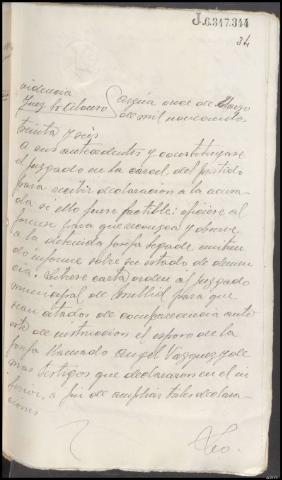 J.6.347.344
34
Providencia
Juez Sr Alonso
Arzúa once de Mayo
de mil novecientos
treinta y seis
A sus antecedentes y constitúyase
el juzgado en la carcel del partido
para recibir declaración a la acusa
da si ello fuese factible; ofíciese al
forense para que reconozca y observe
a la detenida Josefa Segade emitien
do informe sobre su estado de demen
cia; líbrese carta orden al juzgado
municipal de para que
sean citados de comparecencia ante
este de instruccion el esposo de la
Josefa llamado Angel Vazquez y de
mas testigos que declararon en el in
ferior, a fin de ampliar tales declara
ciones